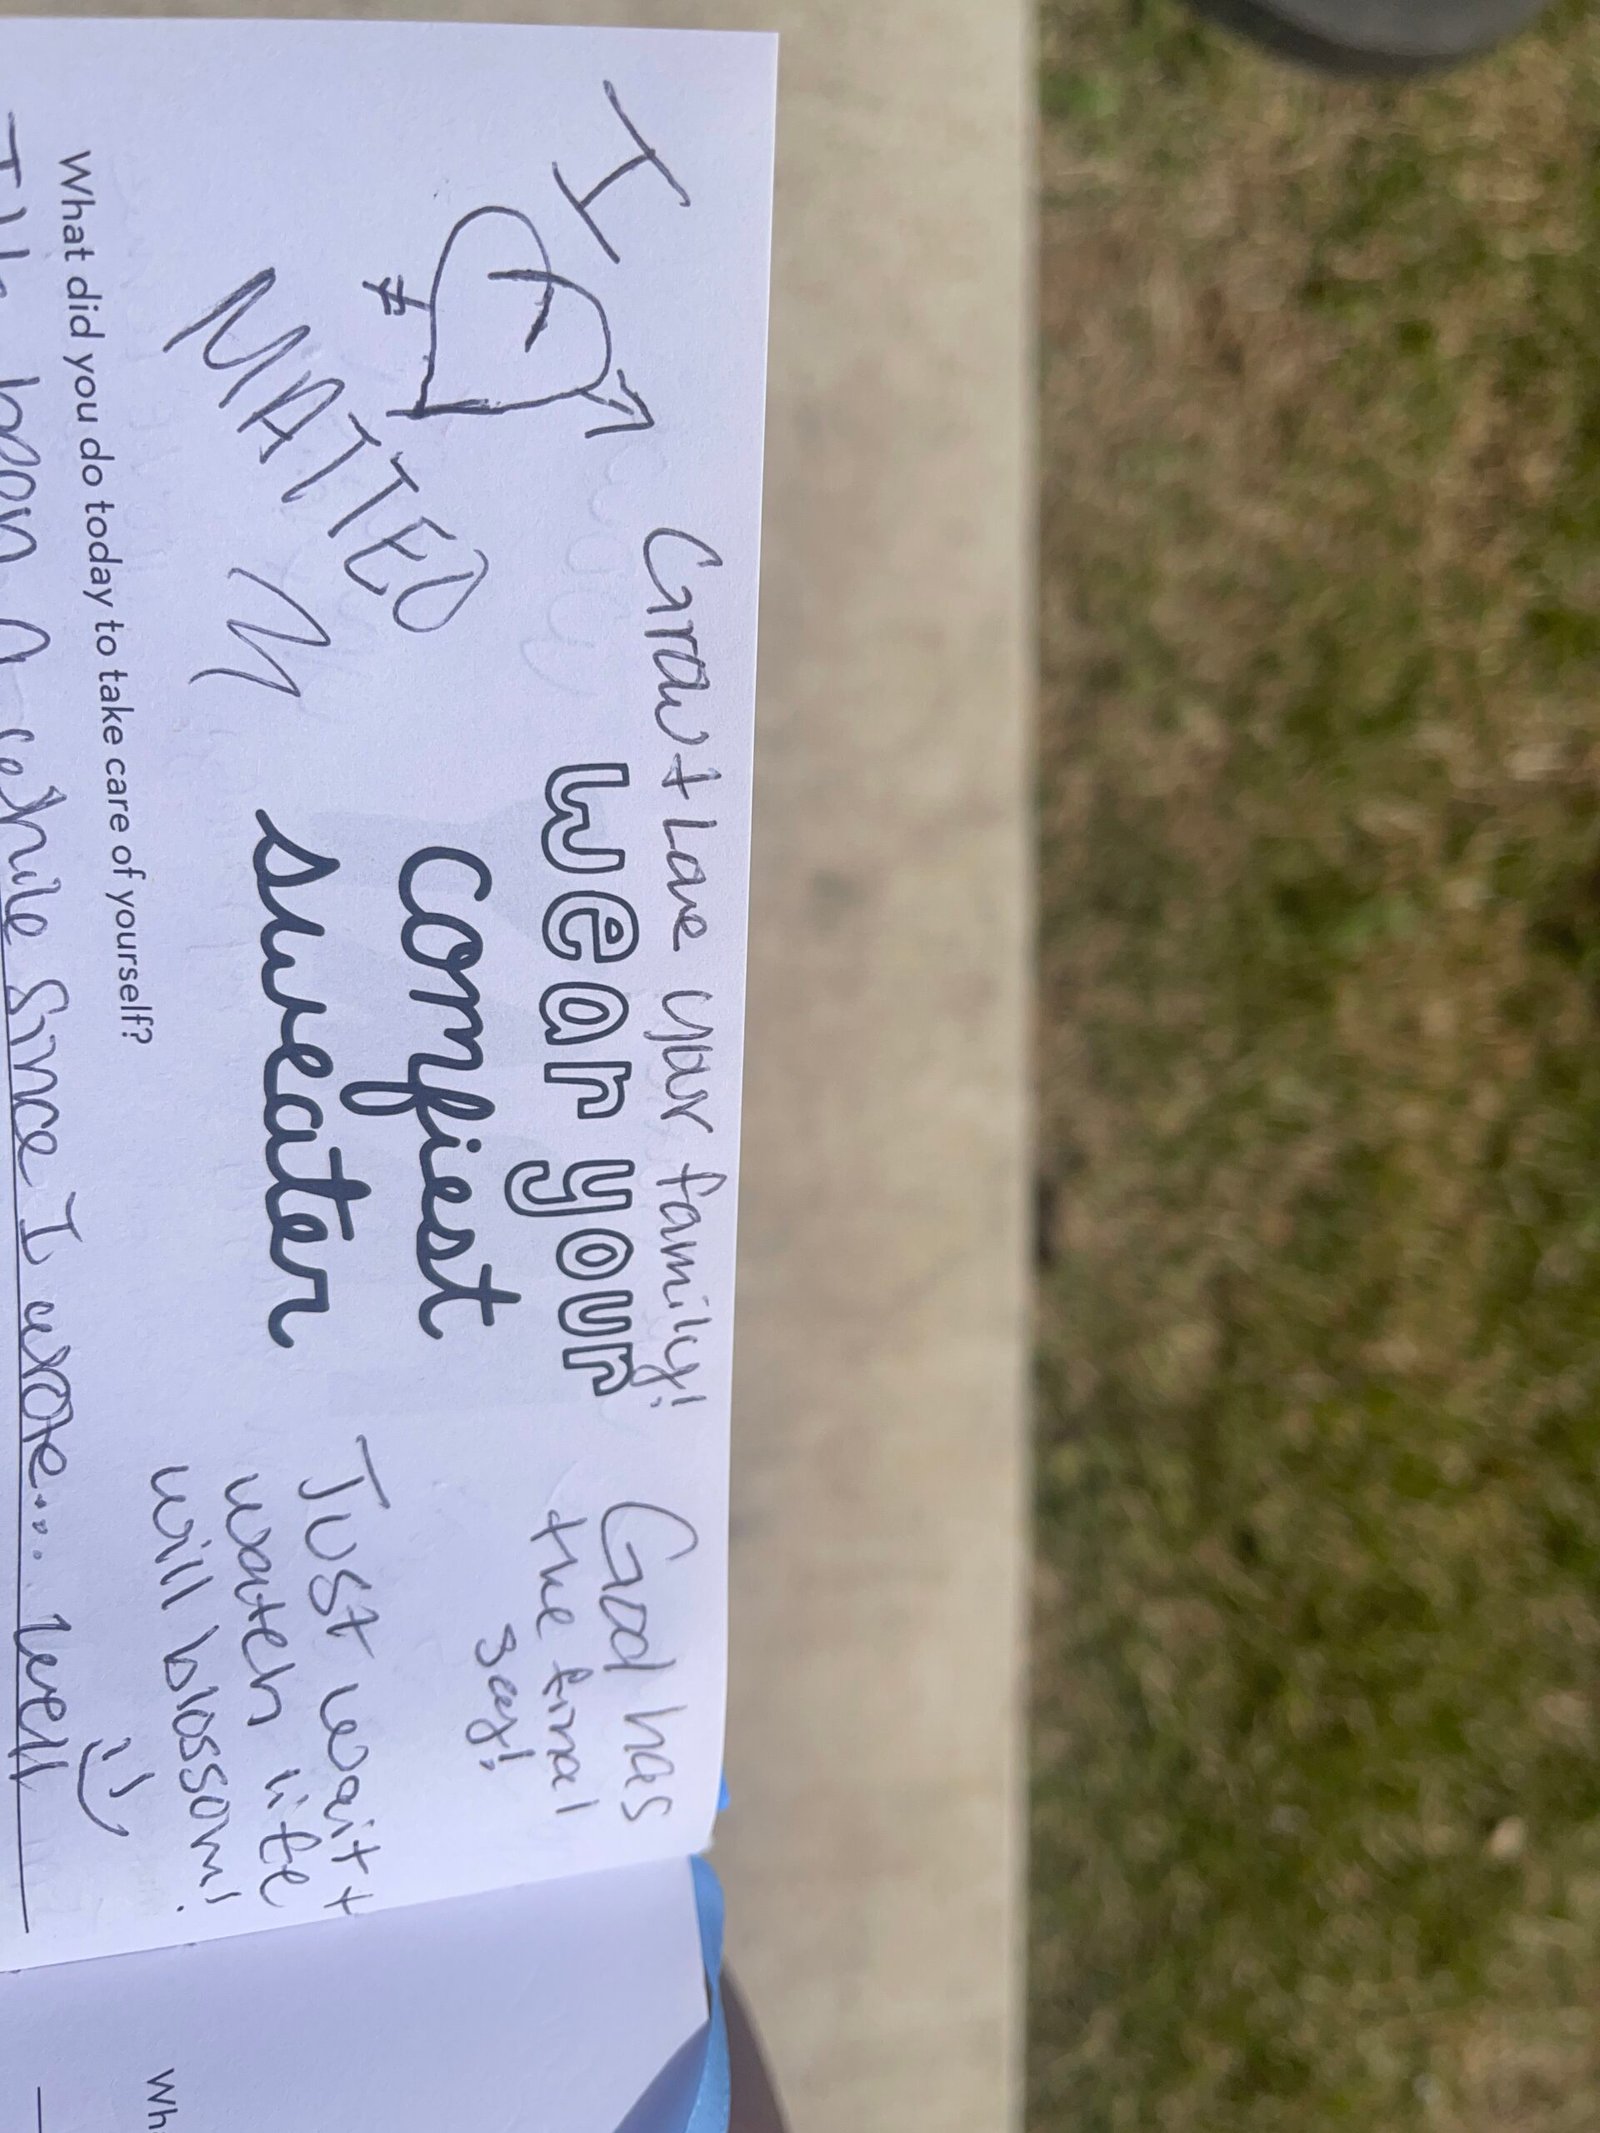 Grow + Love your family!
I
MATTEO
wear your
comfiest
sweater
God has
the final
say!
Just wait +
watch life
will blossom!
What did you do today to take care of yourself?
been a while since I wrote... well
Wh